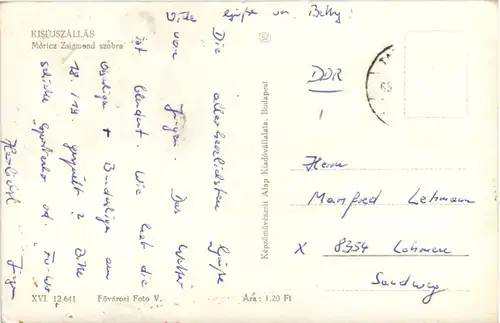 KISÚJSZÁLLÁS
Móricz Zsigmond szobra
Viele Grüße von Betty!
Die allerherzlichsten Grüße
von Jürgen. Das Wetter
ist blendend. Wie hat die
Oberliga + Bundesliga am
18./19. gespielt? Bitte
schicke Sportecho od. "Fuwo"
Herzlichst
Jürgen
Képzőművészeti Alap Kiadóvállalata, Budapest
DDR
Herrn
Manfred Lehmann
X 8354 Lohmen
Sandweg
XVI. 12 641 Fővárosi Foto V. Ára: 1,20 Ft